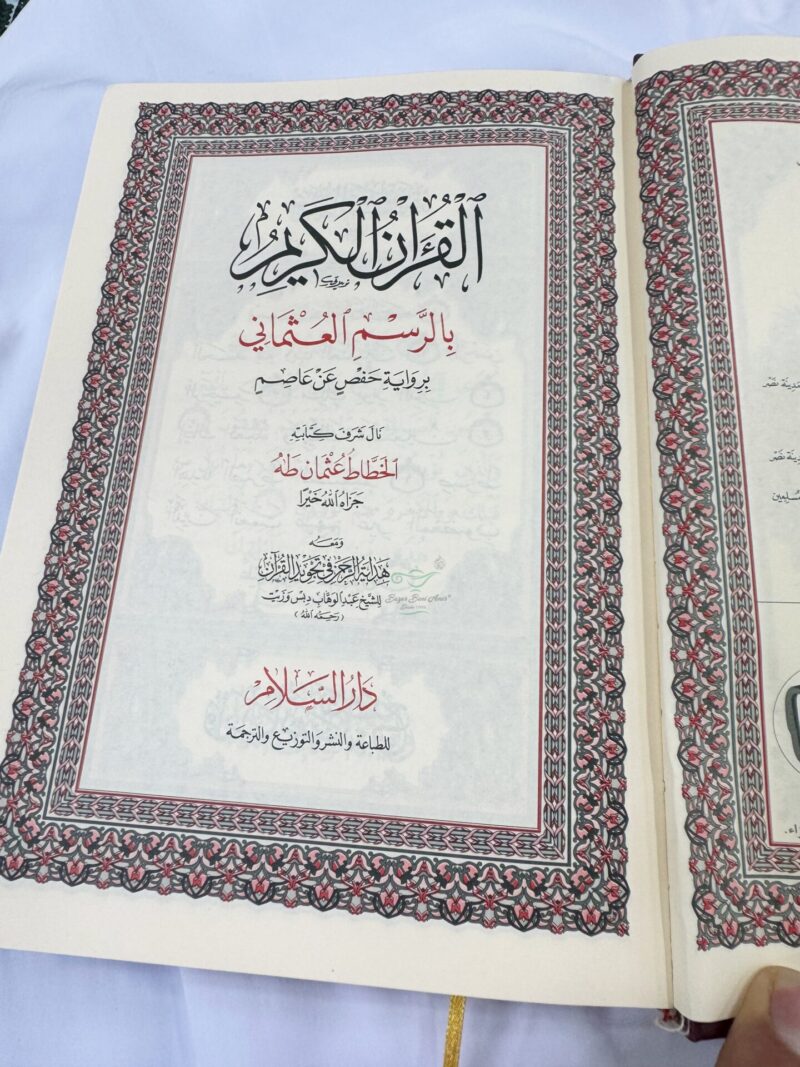 ٱلْقُرْءَانُ ٱلْكَرِيمُ
بِالرَّسْمِ ٱلْعُثْمَانِي
بِرِوَايَةِ حَفْصٍ عَنْ عَاصِمٍ
نَالَ شَرَفَ كِتَابَتِهِ
الخَطَّاطُ عُثْمَان طٰهٰ
جَزَاهُ اللهُ خَيْرًا
وَمَعَهُ
هِدَايَةُ الرَّحْمٰنِ فِي تَجْوِيدِ القُرْآنِ
لِلشَّيْخِ عَبْدِ الوَهَّابْ دِبْس وَزَيْت
( رَحِمَهُ اللهُ )
Bazar Beni Amer®
Since
دَارُ السَّلَامِ
للطباعة والنشر والتوزيع والترجمة
مدينة نصر